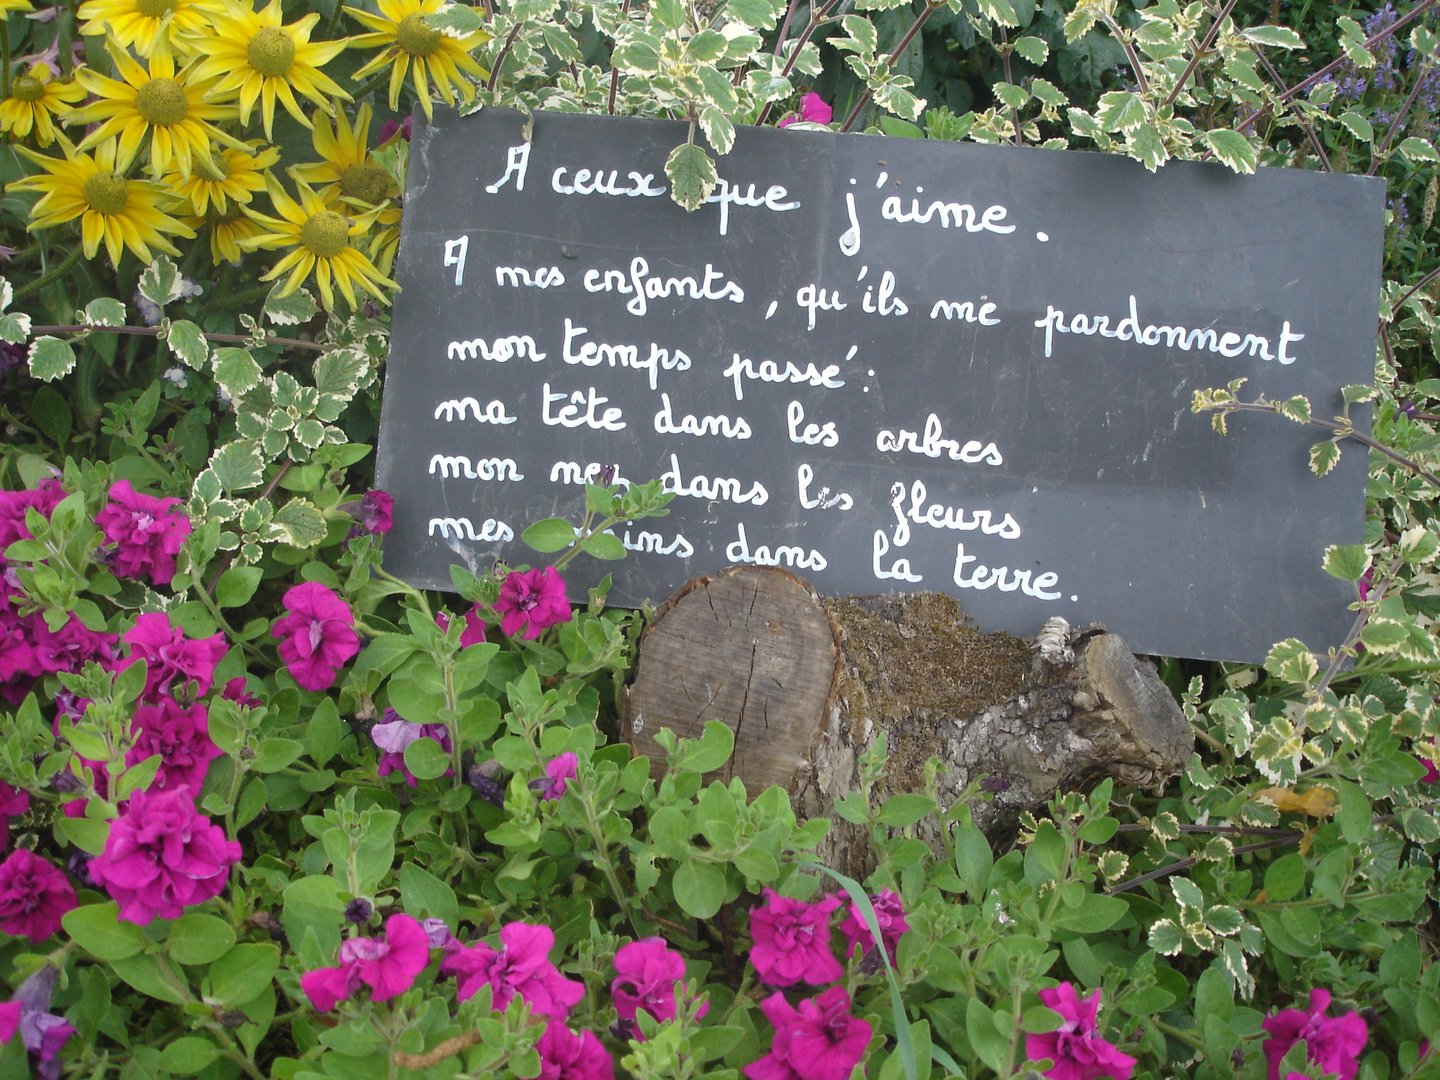 A ceux que j'aime.
A mes enfants, qu'ils me pardonnent
mon temps passé :
ma tête dans les arbres
mon nez dans les fleurs
mes mains dans la terre.